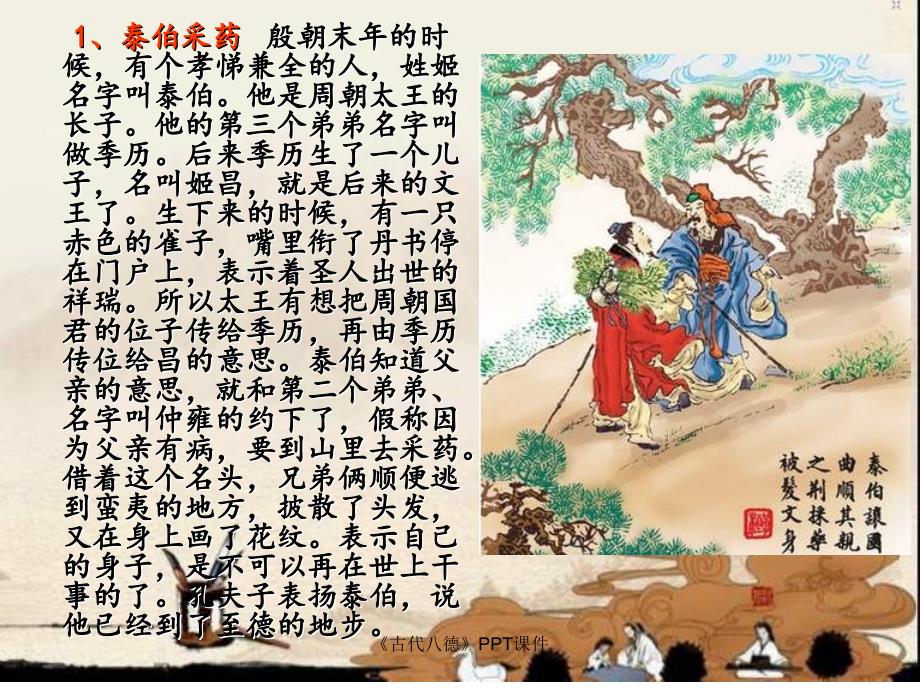 1、泰伯采药 殷朝末年的时
候，有个孝悌兼全的人，姓姬
名字叫泰伯。他是周朝太王的
长子。他的第三个弟弟名字叫
做季历。后来季历生了一个儿
子，名叫姬昌，就是后来的文
王了。生下来的时候，有一只
赤色的雀子，嘴里衔了丹书停
在门户上，表示着圣人出世的
祥瑞。所以太王有想把周朝国
君的位子传给季历，再由季历
传位给昌的意思。泰伯知道父
亲的意思，就和第二个弟弟、
名字叫仲雍的约下了，假称因
为父亲有病，要到山里去采药。
借着这个名头，兄弟俩顺便逃
到蛮夷的地方，披散了头发，
又在身上画了花纹。表示自己
的身子，是不可以再在世上干
事的了。孔夫子表扬泰伯，说
他已经到了至德的地步。
泰伯讓國
曲順其親
之荆採藥
被髮文身
《古代八德》PPT课件